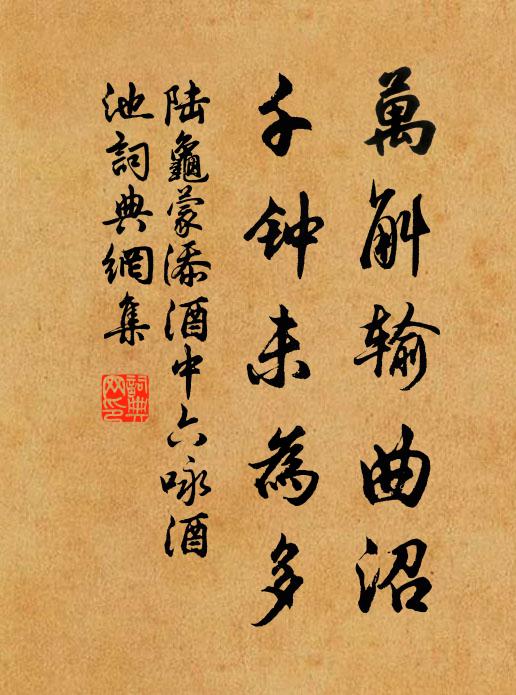 萬斛輸曲沼
千钟未為多
陆龜蒙添酒中六咏酒
池詞典網集
詞典网印